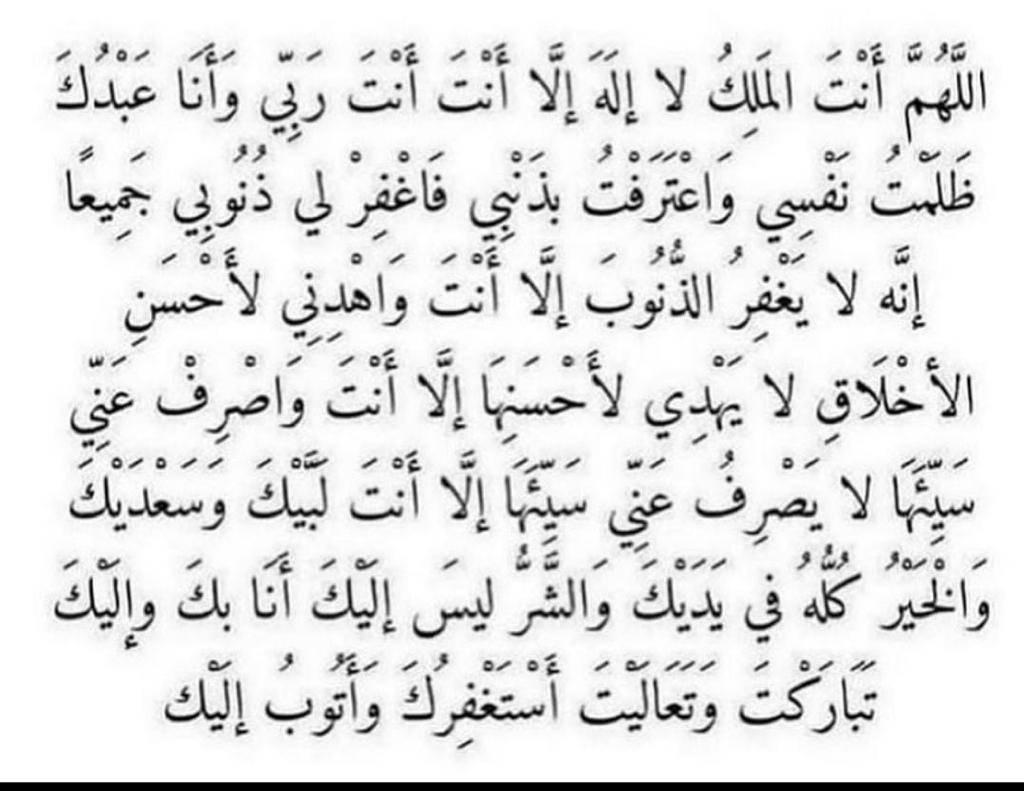 اللَّهُمَّ أَنْتَ المَلِكُ لا إلَهَ إلَّا أَنْتَ أَنْتَ رَبِّي وَأَنَا عَبْدُكَ
ظَلَمْتُ نَفْسِي وَاعْتَرَفْتُ بذَنْبِي فَاغْفِرْ لي ذُنُوبِي جَمِيعًا
إنَّه لا يَغْفِرُ الذُّنُوبَ إلَّا أَنْتَ وَاهْدِنِي لأَحْسَنِ
الأخْلَاقِ لا يَهْدِي لأَحْسَنِهَا إلَّا أَنْتَ وَاصْرِفْ عَنِّي
سَيِّئَهَا لا يَصْرِفُ عَنِّي سَيِّئَهَا إلَّا أَنْتَ لَبَّيْكَ وَسَعْدَيْكَ
وَالْخَيْرُ كُلُّهُ في يَدَيْكَ وَالشَّرُّ ليسَ إلَيْكَ أَنَا بكَ وإلَيْكَ
تَبَارَكْتَ وَتَعَالَيْتَ أَسْتَغْفِرُكَ وَأَتُوبُ إلَيْك